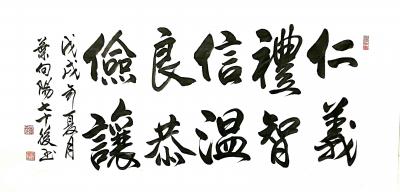 仁義
禮智
信溫
良恭
儉讓
戊戌年夏月
葉向陽七十後書